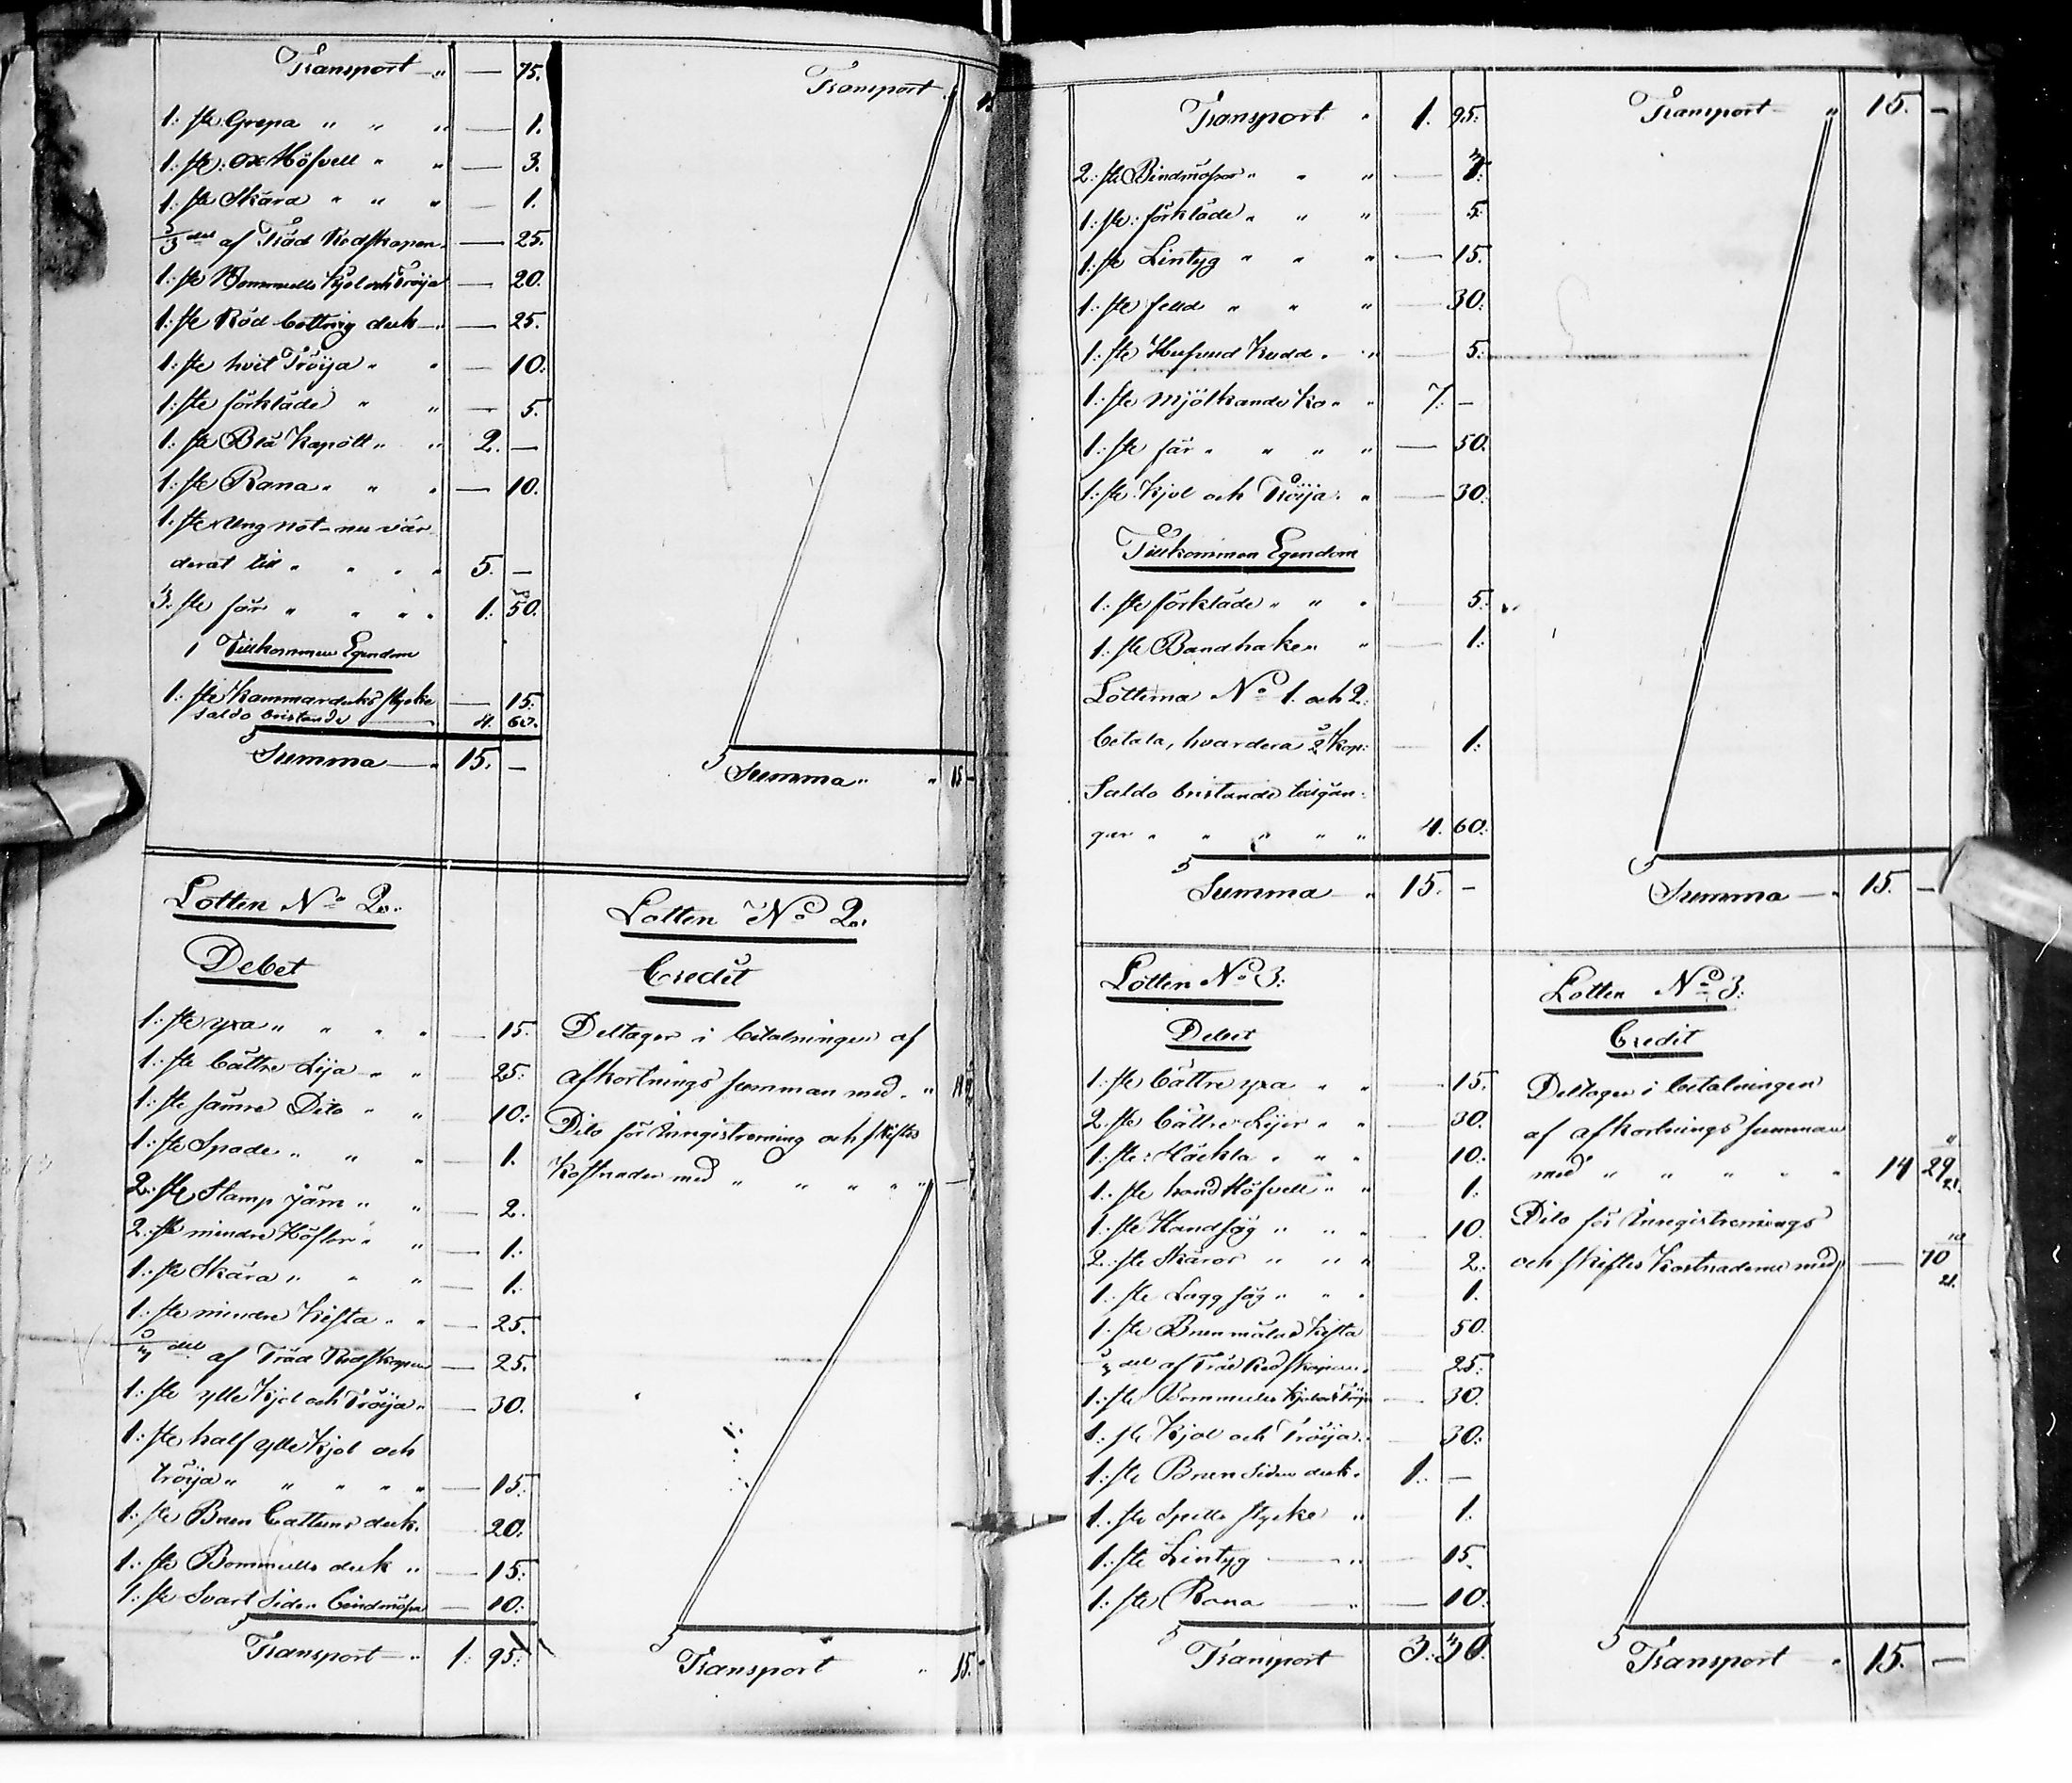 Transport " — 75.
1: ste Grepa " " " — 1.
1: ste: Ox Höfvell " " — 3.
1: ste Skära " " " — 1.
1/3 del af Träd Redskapen — 25.
1: ste Bommulls Kjol och Tröija — 20.
1: ste Röd Cattuig duk — 25.
1: ste hvit Tröija " " — 10.
1: ste förkläde " " — 5.
1: ste Blå Kapått " " 2. —
1: ste Rana " " " — 10.
1. ste Ung nöt nu vär-
derat till " " " " 5. —
3. ste får " " " " 1. 50.
Tillkommen Egendom
1: ste Kammarduks stycke — 15.
Saldo bristande 4. 60.
Summa — " 15. —
Transport
Summa " " 15 —
Lotten No 2.
Debet
1: ste yxa " " " " — 15.
1: ste bättre Lija " " 25.
1: ste sämre Dito " " 10:
1: ste Spade " " " — 1.
2: ste Stamp Järn " " — 2.
2: ste mindre Höflor " " — 1.
1: ste Skära " " " — 1.
1: ste mindre Kista " " — 25.
del af Träd Redskapen — 25.
1: ste ylle Kjol och Tröija " — 30.
1: ste half ylle Kjol och
tröija " " " " " — 15.
1: ste Brun Cattuns duk. 20.
1: ste Bommulls duk " — 15:
1: ste Svart Siden bindmössa — 10:
Transport — " 1: 95:
Lotten No 2.
Credit
Deltager i betalningen af
afkortnings summan med "
Dito för Inregistrering och skiftes
Kostnaden med " " " " "
Transport " 15.
Transport " 1. 95.
2: ste Bindmössor " " "
1: ste: förkläde " " " 5.
1: ste Lintyg " " " — 15.
1: ste felld " " " — 30.
1: ste Hufvud Kudd " " — 5.
1: ste Mjölkande Ko " " 7. —
1: ste får " " " " — 50.
1: ste Kjol och Tröija " " — 30.
Tillkommen Egendom
1: ste förkläde " " " — 5.
1: ste Bandhake " " — 1:
Lotterna No 1. och 2.
betala, hvardera Kop: — 1:
Saldo bristande tillgån-
gar " " " " " 4. 60.
Summa — " 15. —
Transport " 15. —
Summa — " 15. —
Lotten No 3:
Debet
1: ste bättre yxa " " 15.
2: ste bättre Lijor " " 30.
1: ste: Häckla " " " 10:
1: ste hand Höfvell " " 1:
1: ste Handsåg " " " 10.
2: ste Skäror " " " 2:
1: ste Lagg såg " " " 1.
1: ste Brun målad Kista 50.
del af Träd Redskapen 25:
1: ste Bommulls Kjol och Tröija 30.
1: ste Kjol och Tröija " 30:
1: ste Brun Siden duk " 1. —
1: ste Spitts stycke " 1.
1: ste Lintyg — " 15.
1: ste Rana — " — 10.
Transport 3. 30.
Lotten No 3:
Credit
Deltager i betalningen
af afkortnings summan
med " " " " " 14 29
Dito för Inregistrerings
och skiftes Kostnaderne med — 70
Transport — " 15. —